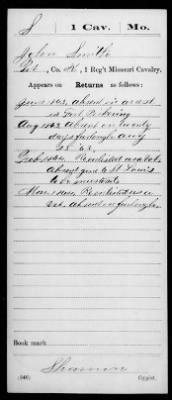 S | 1 Cav. | Mo.
Smith
Pvt, Co. , 1 Reg't Missouri Cavalry.
Appears on Returns as follows:
June 1863, absent in arrest
in Fort Pickering
Aug 1863 absent on twenty
days furlough Aug
Reenlisted as vet
absent gone to St Louis
to be mustered
Reenlisted as a
vet. absent on furlough
Book mark:
(546)
Copyist.